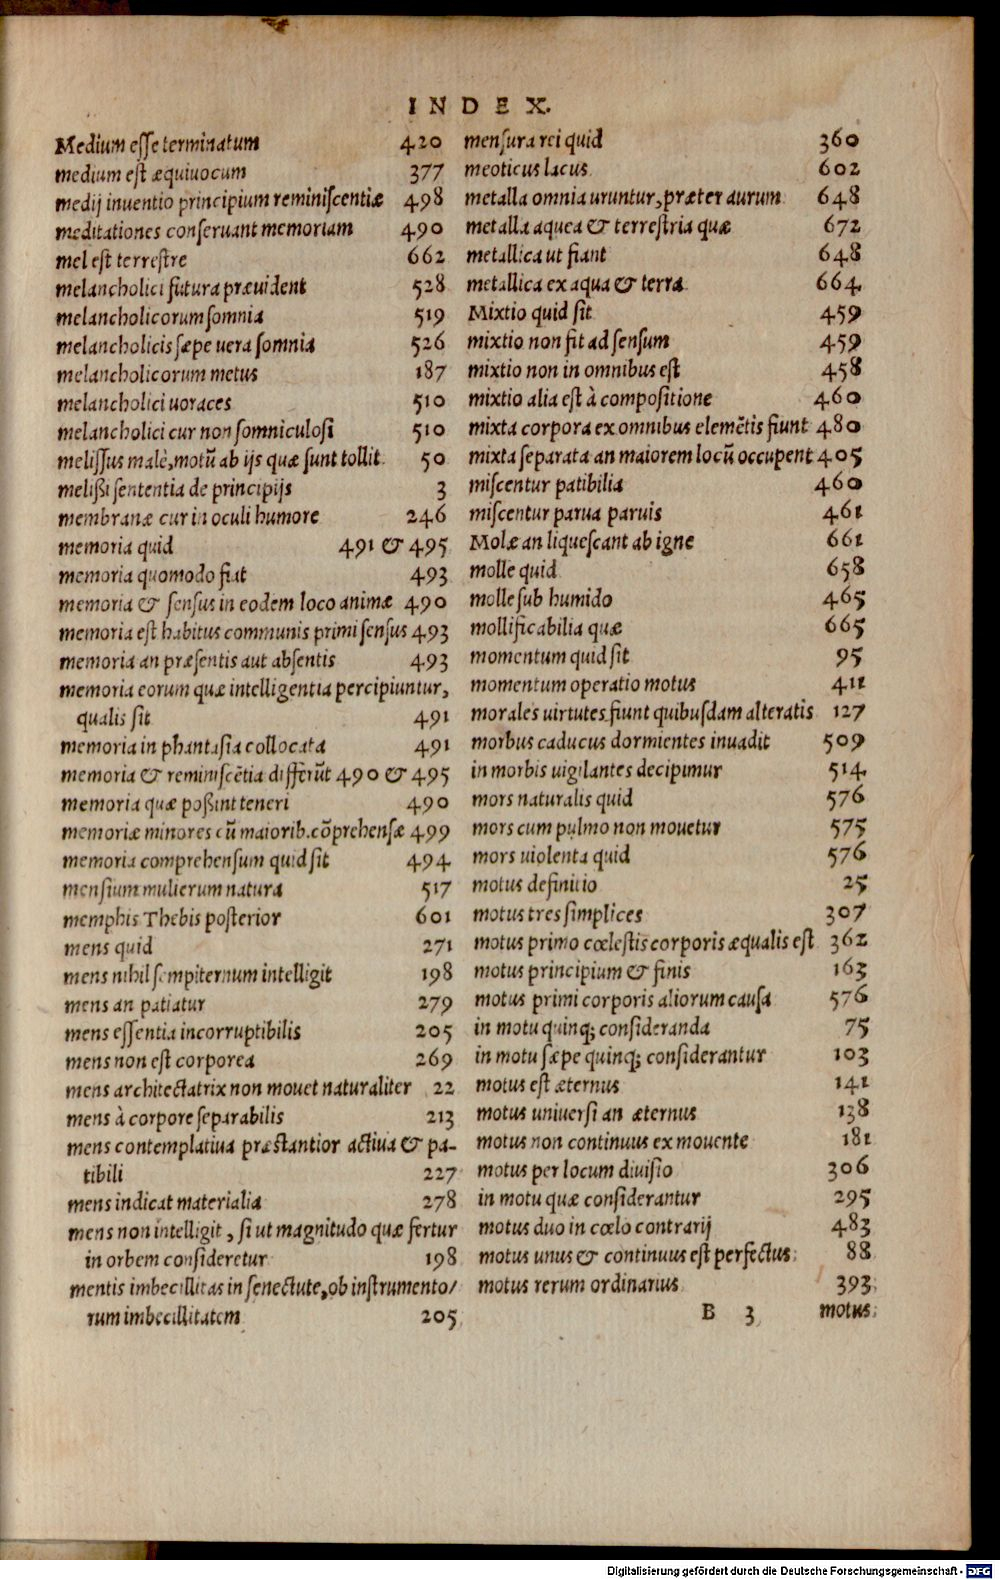 INDEX.
Medium esse terminatum 420
medium est æquiuocum 377
medij inuentio principium reminiscentiæ 498
meditationes conseruant memoriam 490
mel est terrestre 662
melancholici futura præuident 528
melancholicorum somnia 519
melancholicis sæpe uera somnia 526
melancholicorum metus 187
melancholici uoraces 510
melancholici cur non somniculosi 510
melissus malè, motũ ab ijs quæ sunt tollit 50
melißi sententia de principijs 3
membranæ cur in oculi humore 246
memoria quid 491 & 495
memoria quomodo fiat 493
memoria & sensus in eodem loco animæ 490
memoria est habitus communis primi sensus 493
memoria an præsentis aut absentis 493
memoria eorum quæ intelligentia percipiuntur,
qualis sit 491
memoria in phantasia collocata 491
memoria & reminiscẽtia differũt 490 & 495
memoria quæ poßint teneri 490
memoriæ minores cũ maiorib. cõprehensæ 499
memoria comprehensum quid sit 494
mensium mulierum natura 517
memphis Thebis posterior 601
mens quid 271
mens nihil sempiternum intelligit 198
mens an patiatur 279
mens essentia incorruptibilis 205
mens non est corporea 269
mens architectatrix non mouet naturaliter 22
mens à corpore separabilis 213
mens contemplatiua præstantior actiua & pa-
tibili 227
mens indicat materialia 278
mens non intelligit, si ut magnitudo quæ fertur
in orbem consideretur 198
mentis imbecillitas in senectute, ob instrumento/
rum imbecillitatem 205
mensura rei quid 360
meoticus lacus 602
metalla omnia uruntur, præter aurum 648
metalla aquea & terrestria quæ 672
metallica ut fiant 648
metallica ex aqua & terra 664
Mixtio quid sit 459
mixtio non fit ad sensum 459
mixtio non in omnibus est 458
mixtio alia est à compositione 460
mixta corpora ex omnibus elemẽtis fiunt 480
mixta separata an maiorem locũ occupent 405
miscentur patibilia 460
miscentur parua paruis 461
Molæ an liquescant ab igne 661
molle quid 658
molle sub humido 465
mollificabilia quæ 665
momentum quid sit 95
momentum operatio motus 411
morales uirtutes fiunt quibusdam alteratis 127
morbus caducus dormientes inuadit 509
in morbis uigilantes decipimur 514
mors naturalis quid 576
mors cum pulmo non mouetur 575
mors uiolenta quid 576
motus definitio 25
motus tres simplices 307
motus primo cœlestis corporis æqualis est 362
motus principium & finis 163
motus primi corporis aliorum causa 576
in motu quinq; consideranda 75
in motu sæpe quinq; considerantur 103
motus est æternus 141
motus uniuersi an æternus 138
motus non continuus ex mouente 181
motus per locum diuisio 306
in motu quæ considerantur 295
motus duo in cœlo contrarij 483
motus unus & continuus est perfectus 88
motus rerum ordinarius 393
B 3 motus
Digitalisierung gefördert durch die Deutsche Forschungsgemeinschaft - DFG